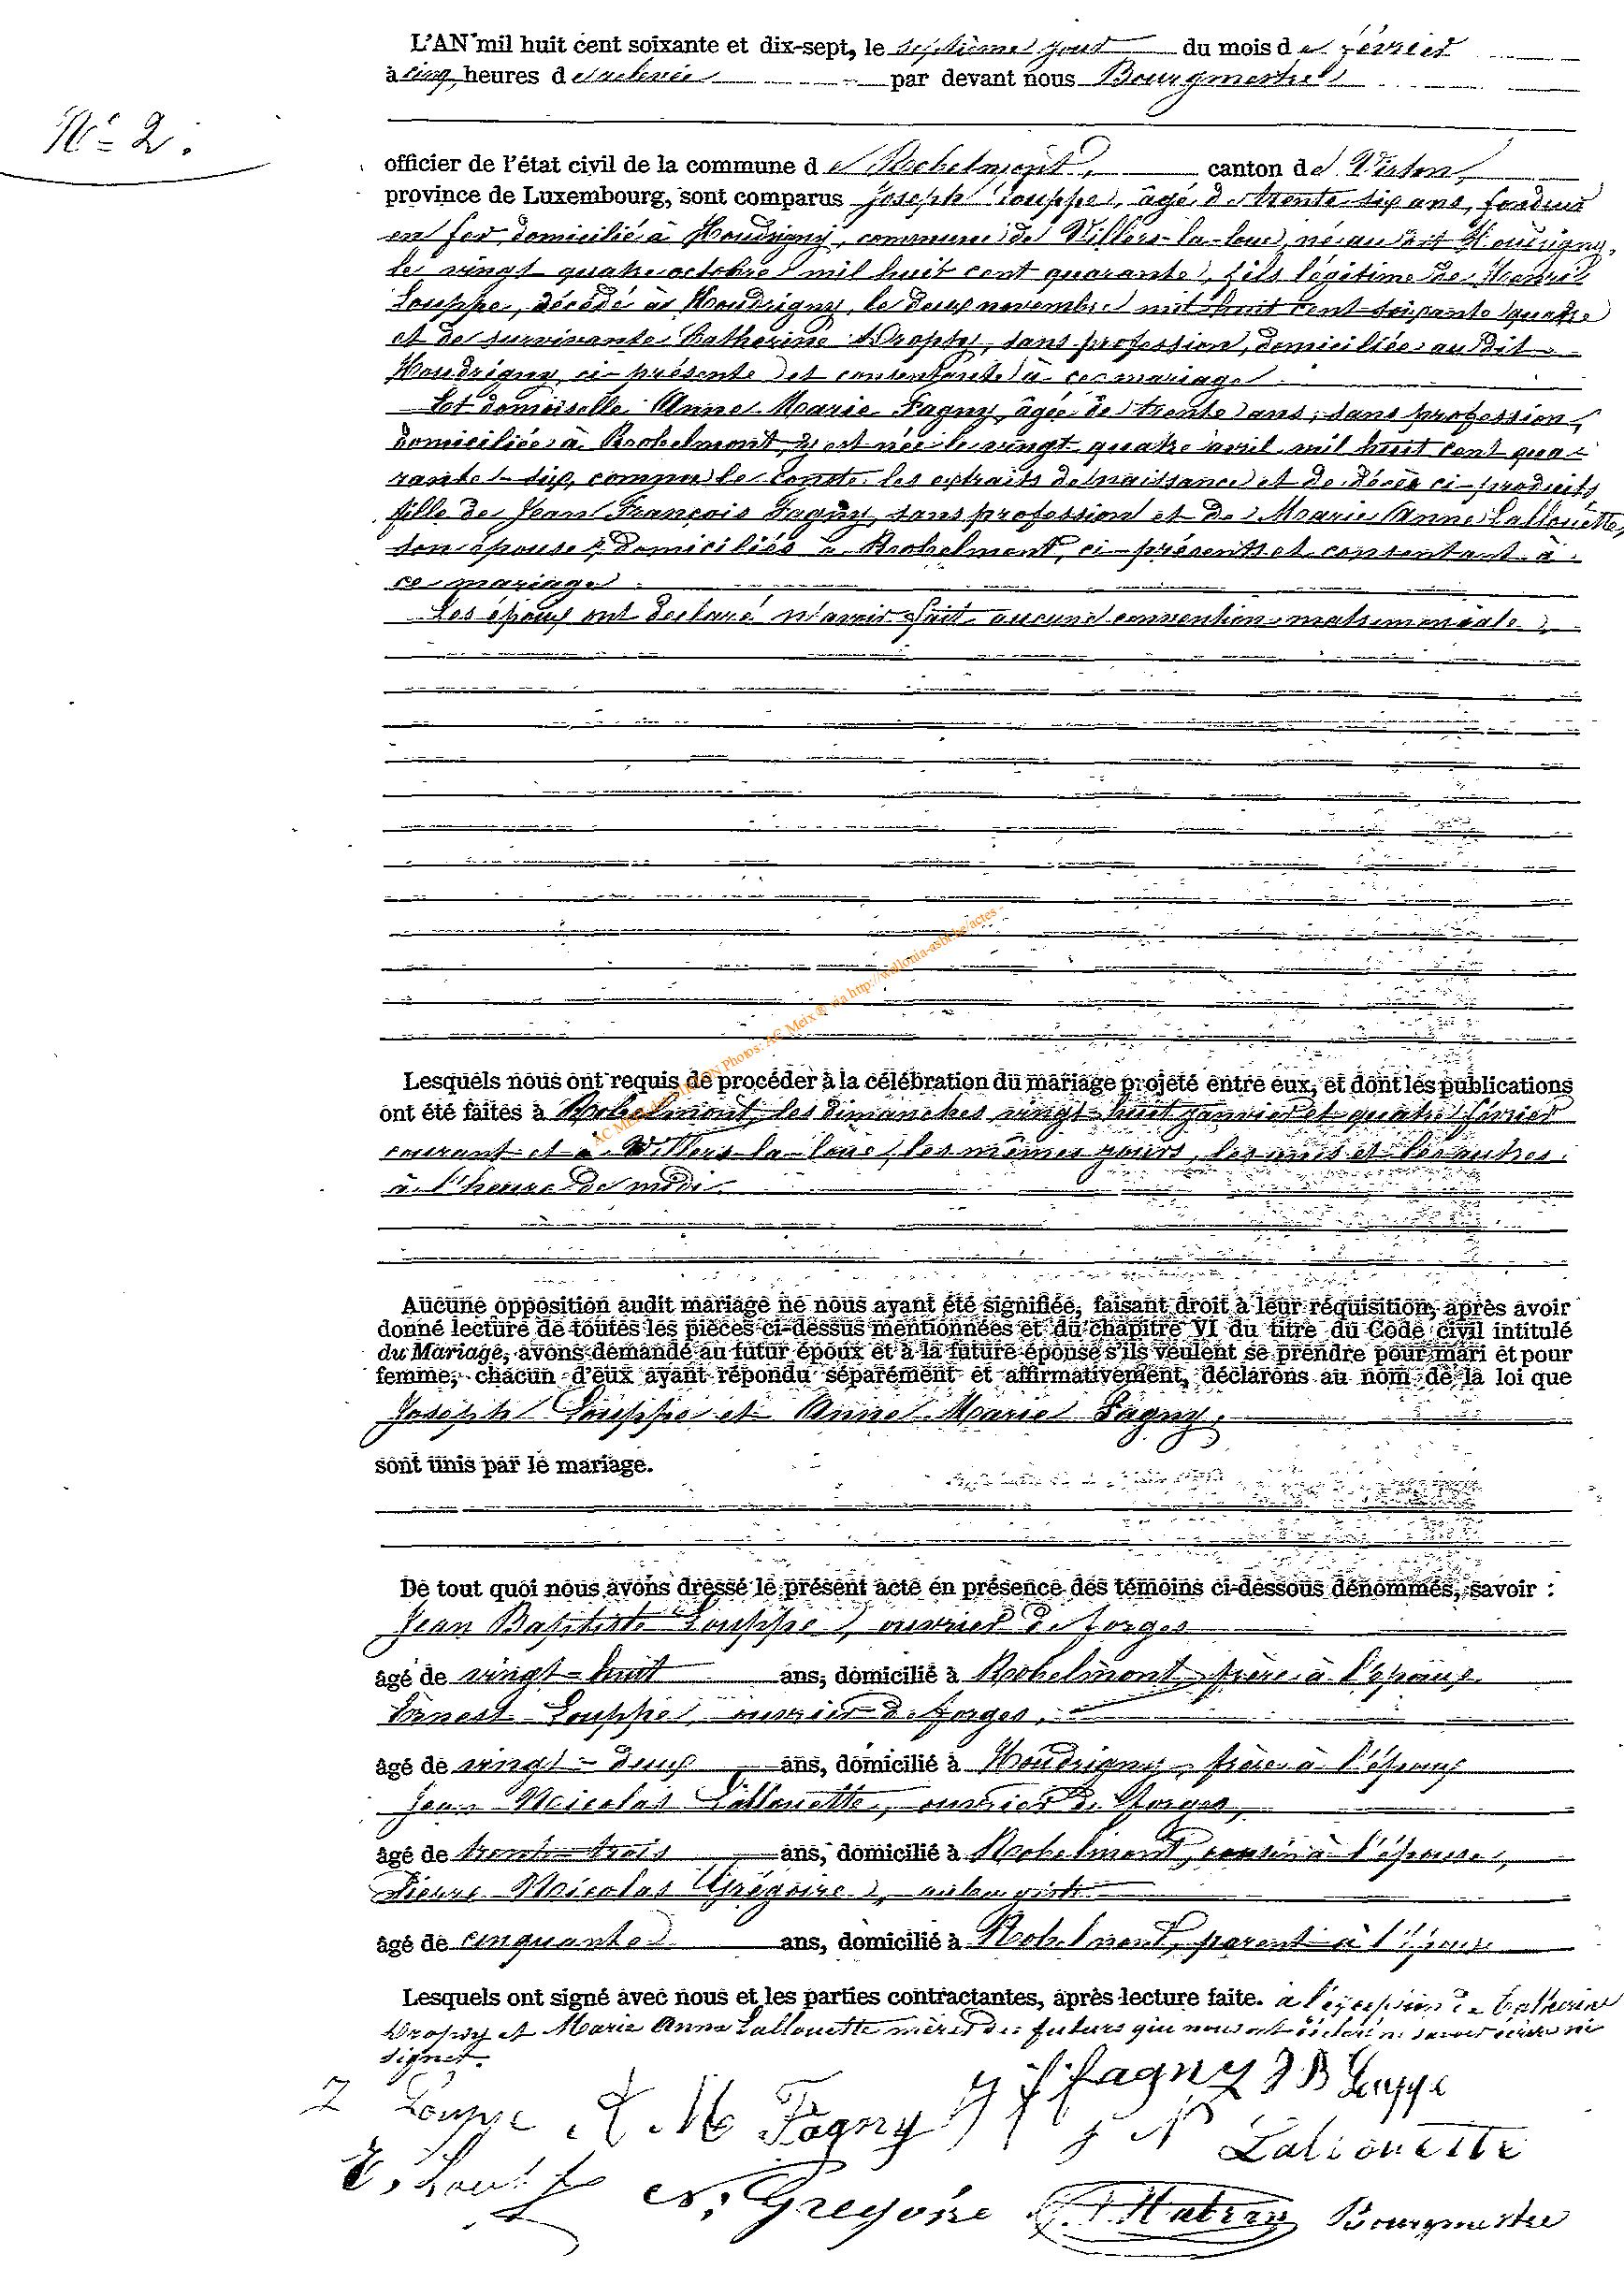 L'AN mil huit cent soixante et dix-sept, le septième jour du mois de février
à cinq heures de relevée par devant nous Bourgmestre
N° 2.
officier de l'état civil de la commune de Robelmont, canton de Virton,
province de Luxembourg, sont comparus Joseph Louppe, âgé de trente six ans, fondeur
en fer, domicilié à Houdrigny, commune de Villers-la-loue, né au dit Houdrigny,
le vingt quatre octobre mil huit cent quarante, fils légitime de Henri
Louppe, décédé à Houdrigny, le deux novembre mil huit cent soixante quatre
et de survivante Catherine Dropsy, sans profession, domiciliée au dit
Houdrigny, ci-présente et consentante à ce mariage
Et demoiselle Anne Marie Fagny, âgée de trente ans, sans profession,
domiciliée à Robelmont, y est née le vingt quatre avril mil huit cent qua-
rante-six, comme le conste les extraits de naissance et de décès ci-produits
fille de Jean François Fagny, sans profession et de Marie Anne Lallouette,
son épouse, domiciliés à Robelmont, ci-présents et consentant à
ce mariage.
Les époux ont déclaré n'avoir fait aucune convention matrimoniale.
AC Meix de VIRTON Photos: AC Meix @ via http://wallonia-asbl.be/actes -
Lesquels nous ont requis de procéder à la célébration du mariage projeté entre eux, et dont les publications
ont été faites à Robelmont, les dimanches vingt-huit janvier et quatre février
courant et à Villers-la-loue, les mêmes jours, les uns et les autres
à l'heure de midi.
Aucune opposition audit mariage ne nous ayant été signifiée, faisant droit à leur réquisition, après avoir
donné lecture de toutes les pièces ci-dessus mentionnées et du chapitre VI du titre du Code civil intitulé
du Mariage, avons demandé au futur époux et à la future épouse s'ils veulent se prendre pour mari et pour
femme; chacun d'eux ayant répondu séparément et affirmativement, déclarons au nom de la loi que
Joseph Louppe et Anne Marie Fagny,
sont unis par le mariage.
De tout quoi nous avons dressé le présent acte en présence des témoins ci-dessous dénommés, savoir :
Jean Baptiste Louppe, ouvrier de forges
âgé de vingt-huit ans, domicilié à Robelmont, frère à l'époux
Ernest Louppe, ouvrier de forges,
âgé de vingt-deux ans, domicilié à Houdrigny, frère à l'époux
Jean Nicolas Lallouette, ouvrier de forges,
âgé de trente-trois ans, domicilié à Robelmont, cousin à l'épouse,
Pierre Nicolas Grégoire,
âgé de cinquante ans, domicilié à Robelmont, parent à l'époux
Lesquels ont signé avec nous et les parties contractantes, après lecture faite. à l'exception de Catherine
Dropsy et Marie Anne Lallouette mères des futurs qui nous ont déclaré ne savoir écrire ni
signer.
J Louppe A. M Fagny J f fagny J B Louppe
J N Lallouette
E. Louppe N. Gregoire Bourgmestre